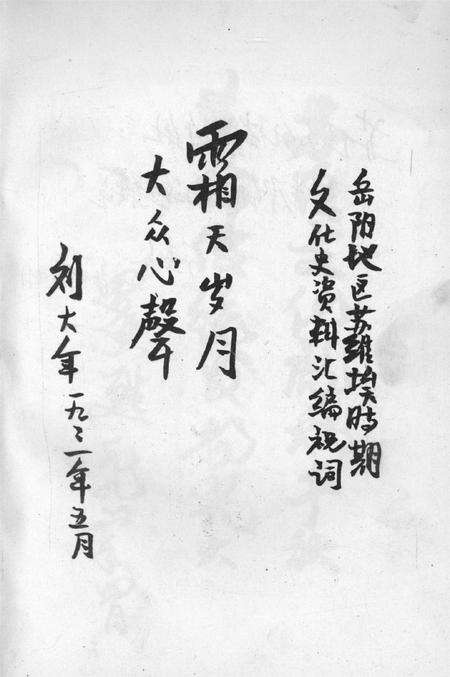 岳阳地区苏維埃時期
文化史資料汇编祝词
霜天岁月
大众心聲
刘大年一九九一年五月